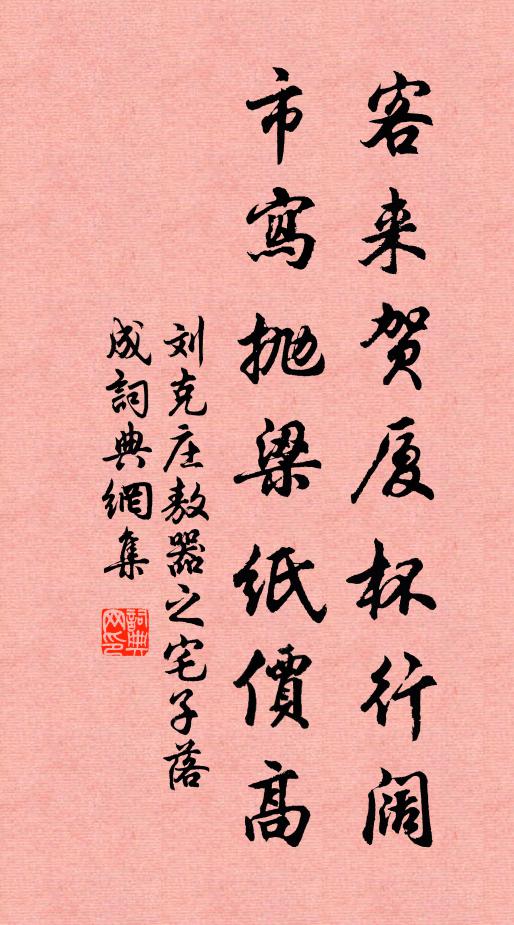 客来贺厦杯行阔
市寫抛梁纸價高
刘克庄敖器之宅子落
成詞典網集
詞典網印